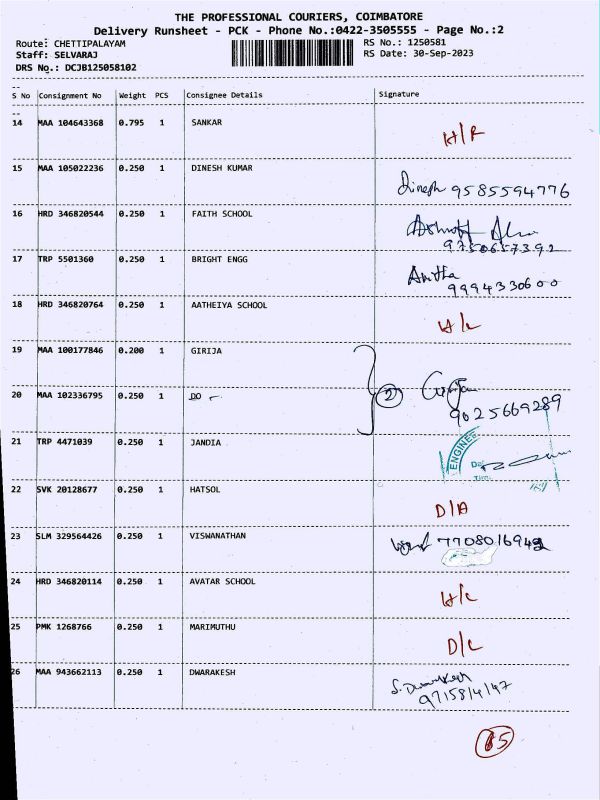 THE PROFESSIONAL COURIERS, COIMBATORE
Delivery Runsheet - PCK - Phone No.:0422-3505555 - Page No.:2
Route: CHETTIPALAYAM RS No.: 1250581
Staff: SELVARAJ RS Date: 30-Sep-2023
DRS No.: DCJB125058102
S No Consignment No Weight PCS Consignee Details Signature
14 MAA 104643368 0.795 1 SANKAR
15 MAA 105022236 0.250 1 DINESH KUMAR Dinesh 9585594776
16 HRD 346820544 0.250 1 FAITH SCHOOL
9750657392
17 TRP 5501360 0.250 1 BRIGHT ENGG Anitha
9994330600
18 HRD 346820764 0.250 1 AATHEIYA SCHOOL
19 MAA 100177846 0.200 1 GIRIJA
20 MAA 102336795 0.250 1 DO 2 Girija
9025669289
21 TRP 4471039 0.250 1 JANDIA ENGINEE
22 SVK 20128677 0.250 1 HATSOL D/A
23 SLM 329564426 0.250 1 VISWANATHAN
24 HRD 346820114 0.250 1 AVATAR SCHOOL
25 PMK 1268766 0.250 1 MARIMUTHU D/L
26 MAA 943662113 0.250 1 DWARAKESH S. Dwarakesh